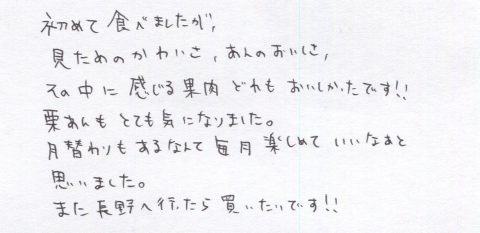 初めて食べましたが、
見ためのかわいさ、あんのおいしさ、
その中に感じる果肉どれもおいしかったです!!
栗あんもとても気になりました。
月替わりもあるなんて毎月楽しめていいなぁと
思いました。
また長野へ行ったら買いたいです!!